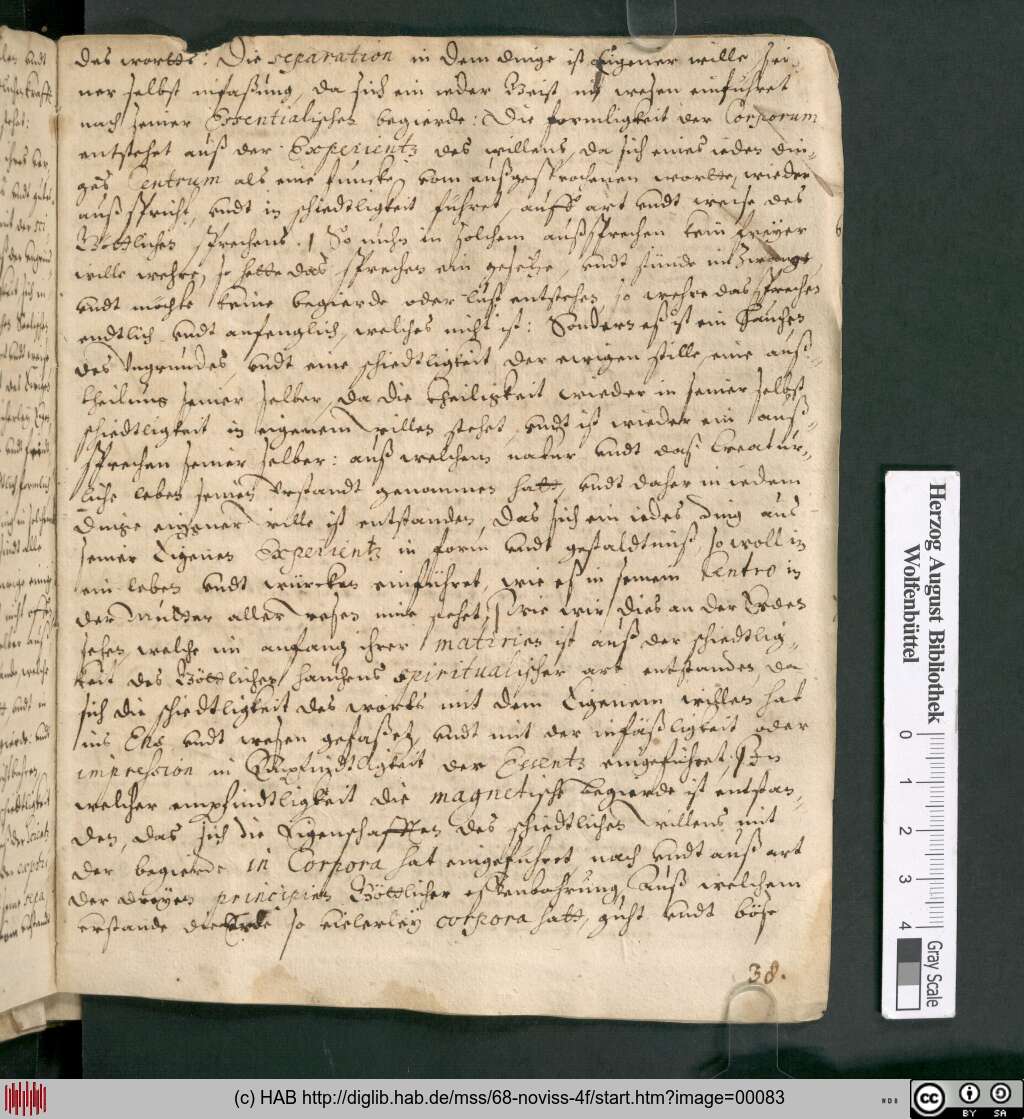 des worttes: Die separation in dem dinge ist Eigener wille, sei
ner selbst infaßung, da sich ein ieder Geist mit wesen einfuhret
nach seiner Essentialischen begierde: Die formligkeit der Corporum
entstehet auß der Experientz des willens, da sich eines ieden din-
ges Centrum als eine funcke, vom außgesprochenen wortte, wieder
außspricht, vndt in schiedtligkeit führet, auff art vndt weise des
Göttlichen sprechens. So nuhn in solchem außsprechen kein freyer
wille wehre, so hette das sprechen ein gesetze, vndt stünde im zwange
vndt möchte keine begierde oder lust entstehen, so wehre das sprechen
endtlich vndt anfenglich, welches nicht ist: Sondern eß ist ein hauchen
des Vngrundes, vndt eine schiedtligkeit der ewigen stille, eine auß-
theilung seiner selber, da die theiligkeit wieder in seiner selbst
schiedtligkeit in eigenem willen stehet, vndt ist wieder ein auß-
sprechen seiner selber: auß welchem natur vndt das Creatur-
liche leben seinen Vrstandt genommen hatt, vndt daher in iedem
Dinge eigener wille ist entstanden, das sich ein iedes ding aus
seiner Eigenen Experientz in form vndt gestaldtniß, so woll in
ein leben vndt würcken einführet, wie es in seinem Centro in
der Mutter aller wesen inne stehet, wie wir dies an der Erden
sehen, welche im anfang ihrer matirien ist auß der schiedtlig-
keit des Göttlichen hauchens spiritualischer art entstanden da
sich die schiedtligkeit des worts mit dem Eigenem willen hat
ins Ens vndt wesen gefaßet, vndt mit der infäßligkeit oder
impression in Empfindtligkeit der Essentz eingeführet, In
welcher empfindtligkeit die magnetische begierde ist entstan-
den, das sich die Eigenschafften des schiedtlichen willens mit
der begierde in Corpora hat eingeführet nach vndt auß art
der dreyen principien Göttlicher offenbahrung, Auß welchem
erstande die Erde so vielerley corpora hatt, guht vndt böse
38.
Herzog August Bibliothek
Wolfenbüttel
0 1 2 3 4
Gray Scale
(c) HAB http://diglib.hab.de/mss/68-noviss-4f/start.htm?image=00083
cc BY SA